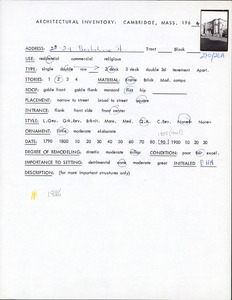 ARCHITECTURAL INVENTORY: CAMBRIDGE, MASS. 196
ADDRESS: 24 Berkshire St Tract Block
USE: residential commercial religious
TYPE: single double row 2 deck 3 deck double 3d tenement Apart.
STORIES: 1 2 3 4 MATERIAL: frame Brick Mod. comps
ROOF: gable front gable flank mansard flat hip
PLACEMENT: narrow to street broad to street square
ENTRANCE: flank front side front center
STYLE: L.Geo. Grk.Rev. Brkt. Mans. Med. Q.A. C.Rev. None
ORNAMENT: little moderate elaborate
DATE: 1790 1800 10 20 30 40 50 60 70 80 90 1900 10 20 30
DEGREE OF REMODELING: drastic moderate minor CONDITION: poor fair excel.
IMPORTANCE TO SETTING: detrimental none moderate great INITIALED
DESCRIPTION: (for more important structures only)